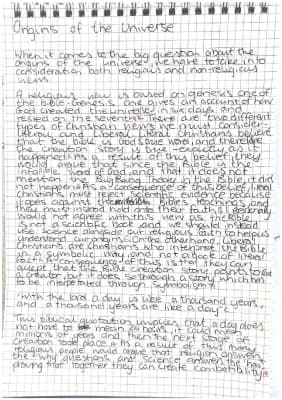 Origins of the Universe
When it comes to the big question about the
origins of the universe, we have to take into
consideration both religious and non-religious
views.
A religious view is based on genesis one of
the Bible. Genesis one gives an account of how
God created the universe in six days and
rested on the seventh. There are two different
types of christian views we must consider
literal and liberal. Literal christians believe
that the bible is God's true word, and therefore
the creation story is true exactly as it
happened. As a result of this belief, they
would argue that since the Bible is the
infallible word of God and that it does not
mention the Big Bang Theory in the Bible, it did
not happen. As a consequence of this belief, literal
Christians must reject scientific evidence because
it goes against the Bible's teachings and
they must instead hold onto their faith. I personally
would not agree with this view as the bible
is not a scientific book and we should instead
use science alongside our religious faith to help us
understand our origins. On the other hand, liberal
Christians are Christians who interpret the Bible
in a symbolic way and not a book of literal
facts. A consequence of this is that they can
accept that the Bible creation story points to
a creator, but it does so through a story which has
to be interpreted through symbolism.
"With the lord a day is like a thousand years,
and a thousand years are like a day"
This biblical quotation implies that a day does
not have to mean 24 hours, it could mean
millions of years and then the next stage of
creation took place. As a result of this many
religious people would argue that religion answers
the "why" questions and science answers the "how"
proving that together they can create compatibility.